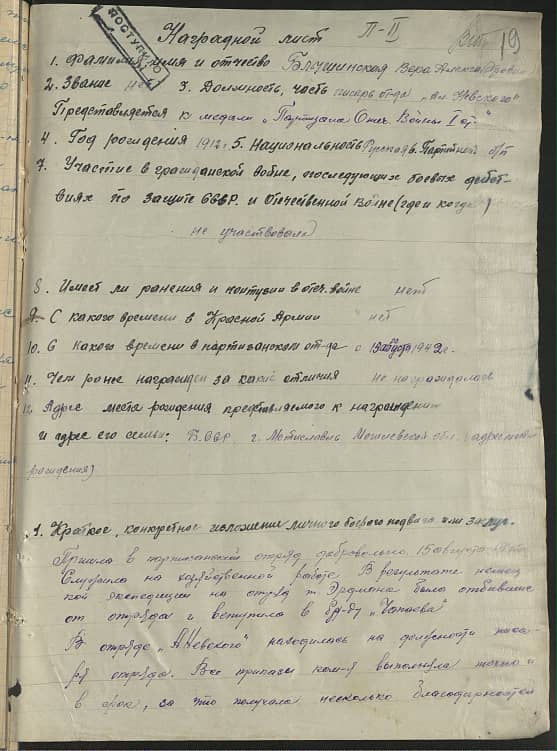 ДОСТУПНО
Наградной лист П-II 19
1. Фамилия, имя и отчество Блушинская Вера Александровна
2. Звание нет 3. Должность, часть писарь отда „Ал. Невского"
Представляется к медали „Партизана Отеч. Войны I ст."
4. Год рождения 1912г. 5. Национальность Русская 6. Партийной б/п
7. Участие в гражданской войне, последующих боевых дейст-
виях по защите СССР и Отечественной Войне (где и когда)
не участвовала
8. Имеет ли ранения и контузии в отеч. войне нет
9. С какого времени в Красной Армии нет
10. С какого времени в партизанском от-де с августа 1942г.
11. Чем ранее награжден за какие отличия не награждалась
12. Адрес места рождения представляемого к награждению
и адрес его семьи: БССР г. Мстиславль обл. (адрес
рождения)
1. Краткое, конкретное изложение личного боевого подвига или заслуг.
Пришла в партизанский отряд добровольно 15 августа
Служила на хозяйственной работе. В результате немец
кой экспедиции на отряд т. Эрдмана была отбившись
от отряда и вступила в „Чапаева"
В отряде „А Невского" находилась на должности писа-
ря отряда. Все приказы ком-я выполняла точно и
в срок, за что получала несколько благодарностей